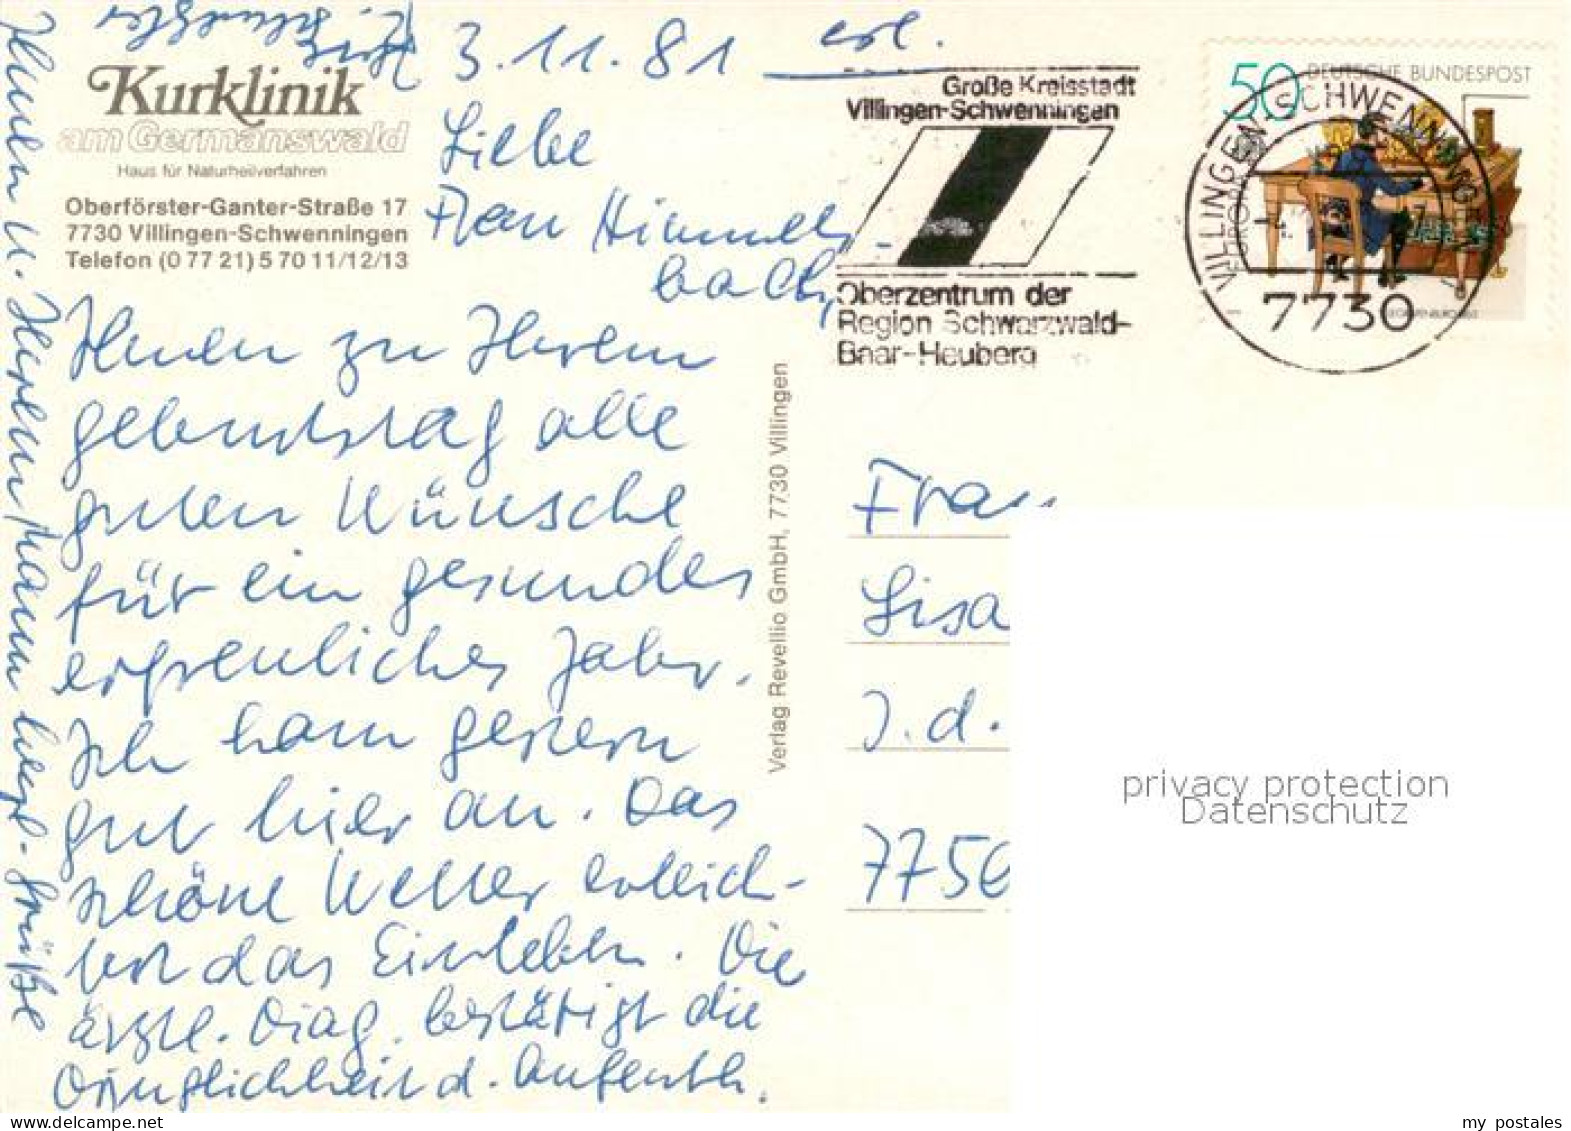 3.11.81
erl.
Kurklinik
am Germanswald
Haus für Naturheilverfahren
Oberförster-Ganter-Straße 17
7730 Villingen-Schwenningen
Telefon (0 77 21) 5 70 11/12/13
Liebe
Frau Himmels-
bach,
Ihnen zu Ihrem
geburtstag alle
guten Wünsche
für ein gesundes
erfreuliches Jahr.
Ich kam gestern
gut hier an. Das
schöne Wetter erleich-
tert das Einleben. Die
ärztl. Diag. bestätigt die
Dringlichkeit d. Aufenth.
Ihnen u. Ihrem Mann herzl. Grüße
Verlag Revellio GmbH, 7730 Villingen
Große Kreisstadt
Villingen-Schwenningen
Oberzentrum der
Region Schwarzwald-
Baar-Heuberg
50 DEUTSCHE BUNDESPOST
VILLINGEN-SCHWENNINGEN
7730
Frau
Lisa
J. d.
7750
privacy protection
Datenschutz
my postales